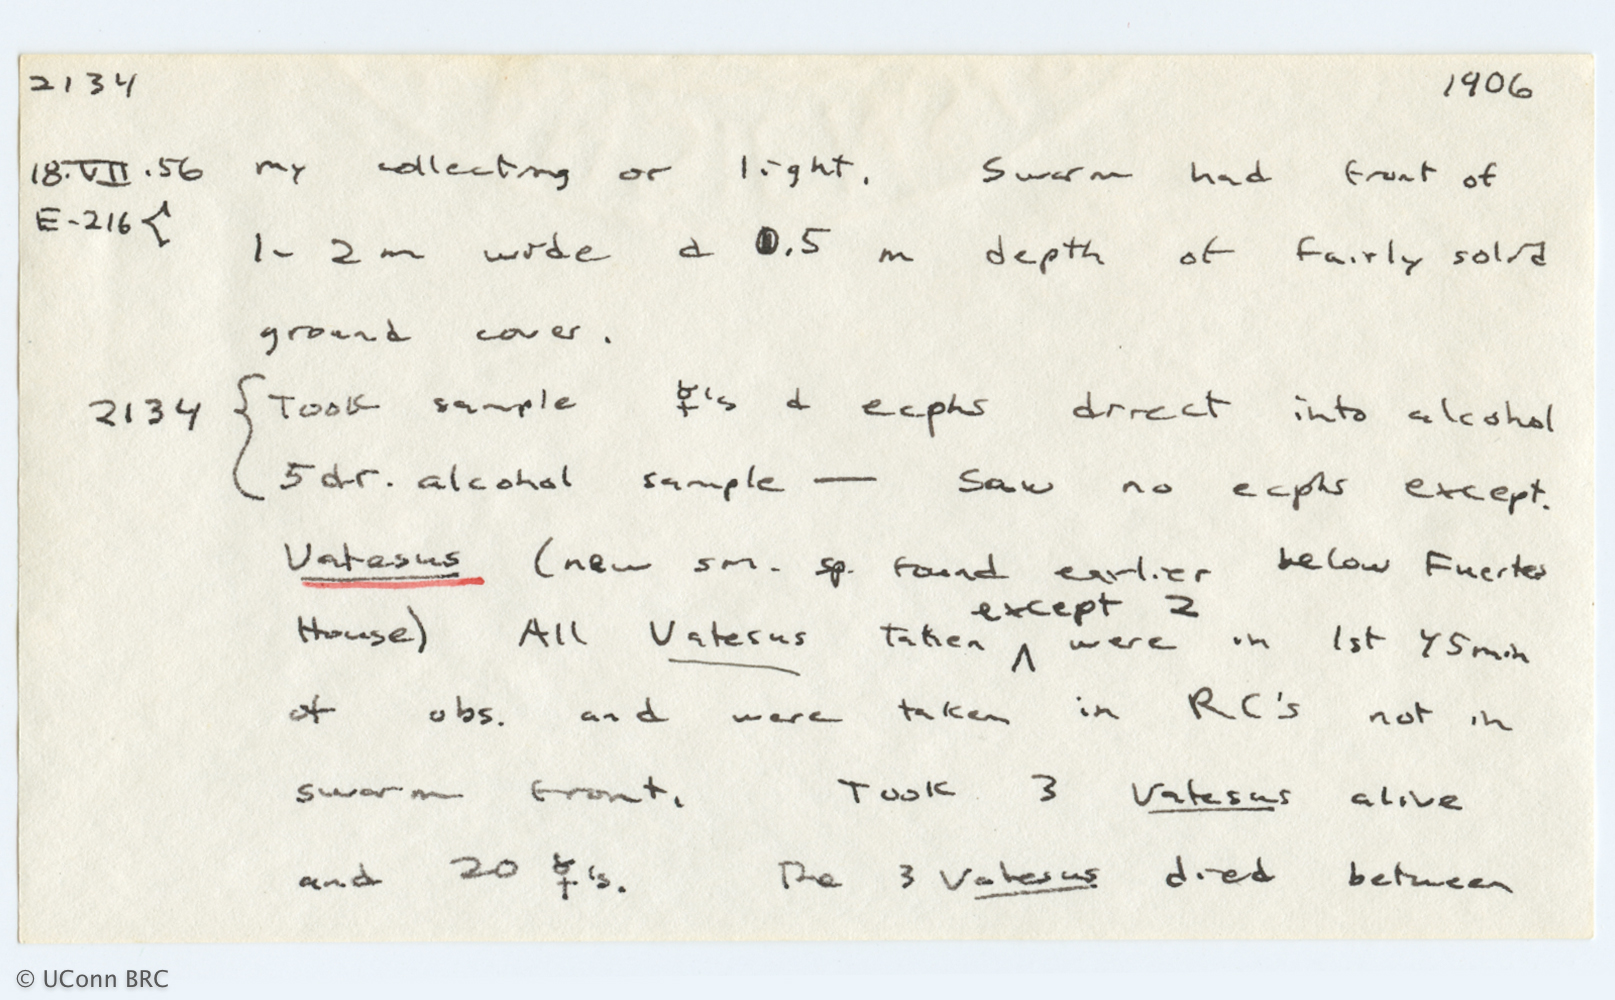 2134 1906
18.VII.56 my collecting or light. Swarm had front of
E-216 { 1-2 m wide & 0.5 m depth of fairly solid
ground cover.
2134 { Took sample ☿'s & ecphs direct into alcohol
5 dr. alcohol sample — Saw no ecphs except.
Vatesus (new sm. sp. found earlier below Fuertes
House) All Vatesus taken ^ except 2 were in 1st 45 min
of obs. and were taken in RC's not in
swarm front. Took 3 Vatesus alive
and 20 ☿'s. The 3 Vatesus died between
© UConn BRC